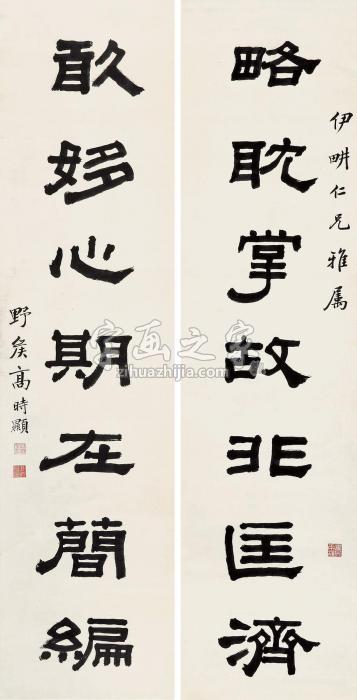 伊畊仁兄雅属
略耽掌故非匡濟
敢姼心期在簡編
野矦高時顯
字画之家
zihuazhijia.com